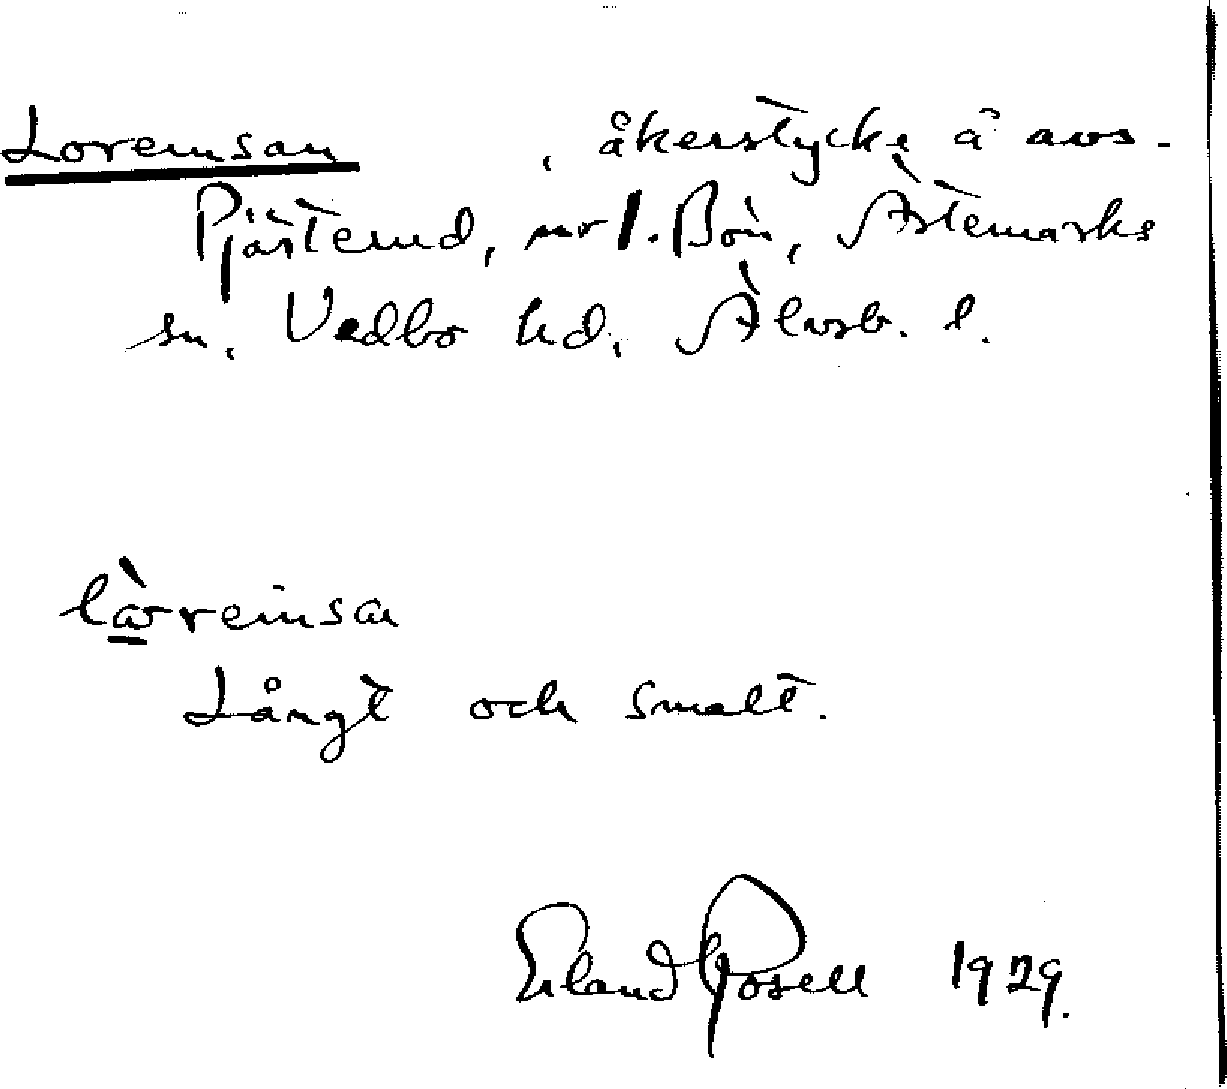 Loremsan , åkerstycke å avs-
Pjästerud, nr 1. Bön, Ärtemarks
sn, Vedbo hd, Älvsb. l.
lårreinsa
Långt och smalt.
Erland Rosell 1929.